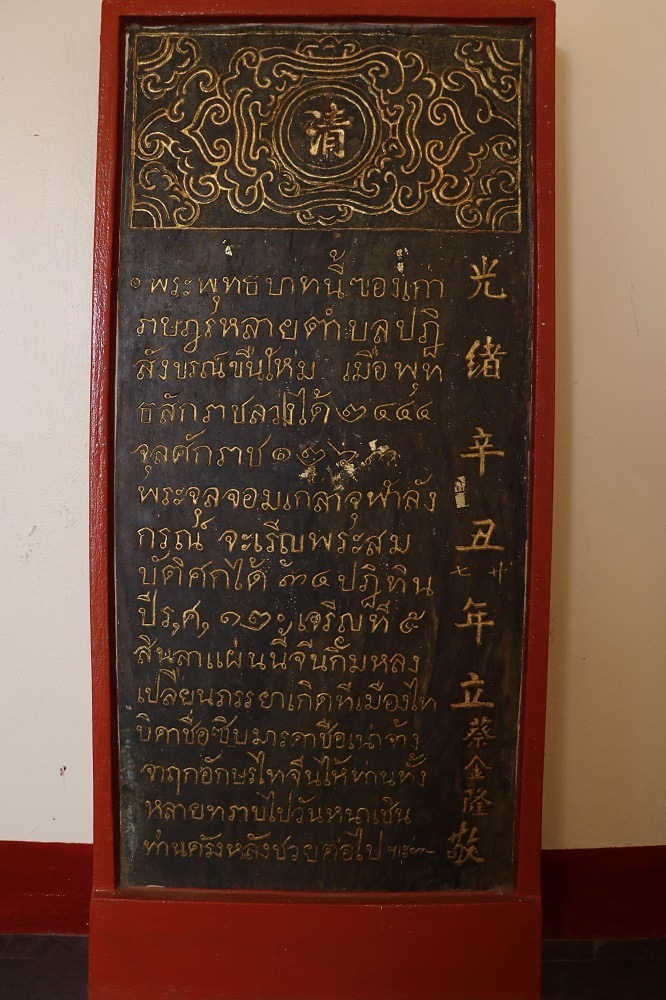 清
๏ พระพุทธบาทนี้ของเก่า
ราษฎรหลายตำบลปฏิ
สังขรณ์ขึ้นใหม่ เมื่อพุท
ธสักราชลว่งได้ ๒๔๔๔
จุลศักราช ๑๒๖๓
พระจุลจอมเกลาจุฬาลัง
กรณ์ จะเรีญพระสม
บัติศกได้ ๓๔ ปฏิทิน
ปีร,ศ, ๑๒๐ เจริญที่ ๕
สินลาแผ่นนี้จีนกิมหลง
เปลี่ยนภรรยาเกิดที่เมืองไท
บิดาชื่อซิบมารดาชื่อเน่าจ้าง
จาฤกอักษรไทจีนให้ท่านทั้ง
หลายทราบไปวันหน้าเชิน
ท่านครังหลังช่วยต่อไป
光緒辛丑年立
七 廿
蔡金隆敬